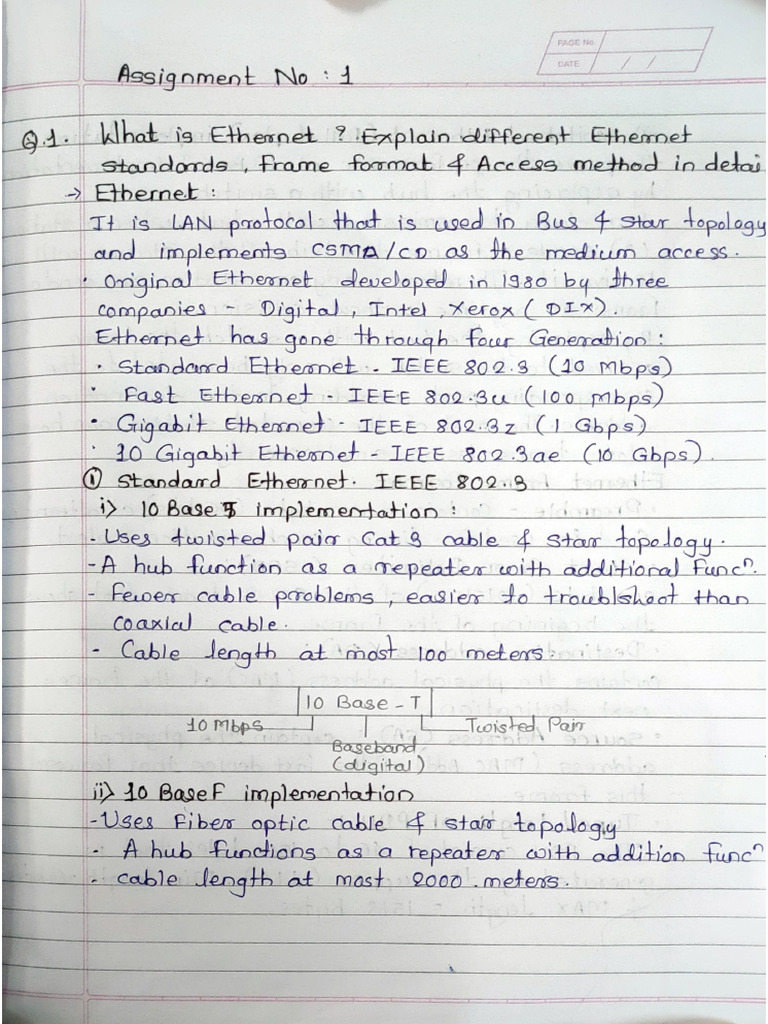 PAGE No.
DATE / /
Assignment No : 1
Q.1. What is Ethernet ? Explain different Ethernet
standards, Frame format & Access method in detai
→ Ethernet :
It is LAN protocol that is used in Bus & star topology
and implements CSMA/CD as the medium access.
· Original Ethernet developed in 1980 by three
companies - Digital, Intel, Xerox (DIX).
Ethernet has gone through four Generation :
· Standard Ethernet - IEEE 802.3 (10 Mbps)
· Fast Ethernet - IEEE 802.3u (100 Mbps)
· Gigabit Ethernet - IEEE 802.3z (1 Gbps)
· 10 Gigabit Ethernet - IEEE 802.3ae (10 Gbps).
① Standard Ethernet. IEEE 802.3
i) 10 Base T implementation :
- Uses twisted pair Cat 3 cable & star topology.
- A hub function as a repeater with additional Funcⁿ.
- Fewer cable problems, easier to troublshoot than
coaxial cable.
- Cable length at most 100 meters.
10 Base - T
10 Mbps Twisted Pair
Baseband
(digital)
ii) 10 Base F implementation
- Uses Fiber optic cable & star topology
- A hub functions as a repeater with addition funcⁿ
- cable length at most 2000 meters.